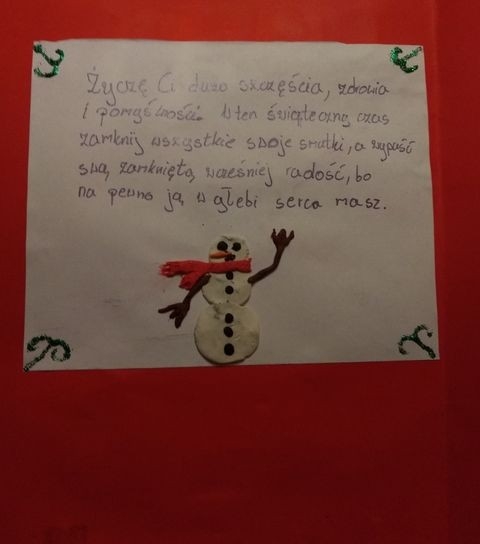 Życzę Ci dużo szczęścia, zdrowia
i pomyślności. W ten świąteczny czas
zamknij wszystkie swoje smutki, a wypuść
swą zamkniętą wcześniej radość, bo
na pewno ją w głębi serca masz.